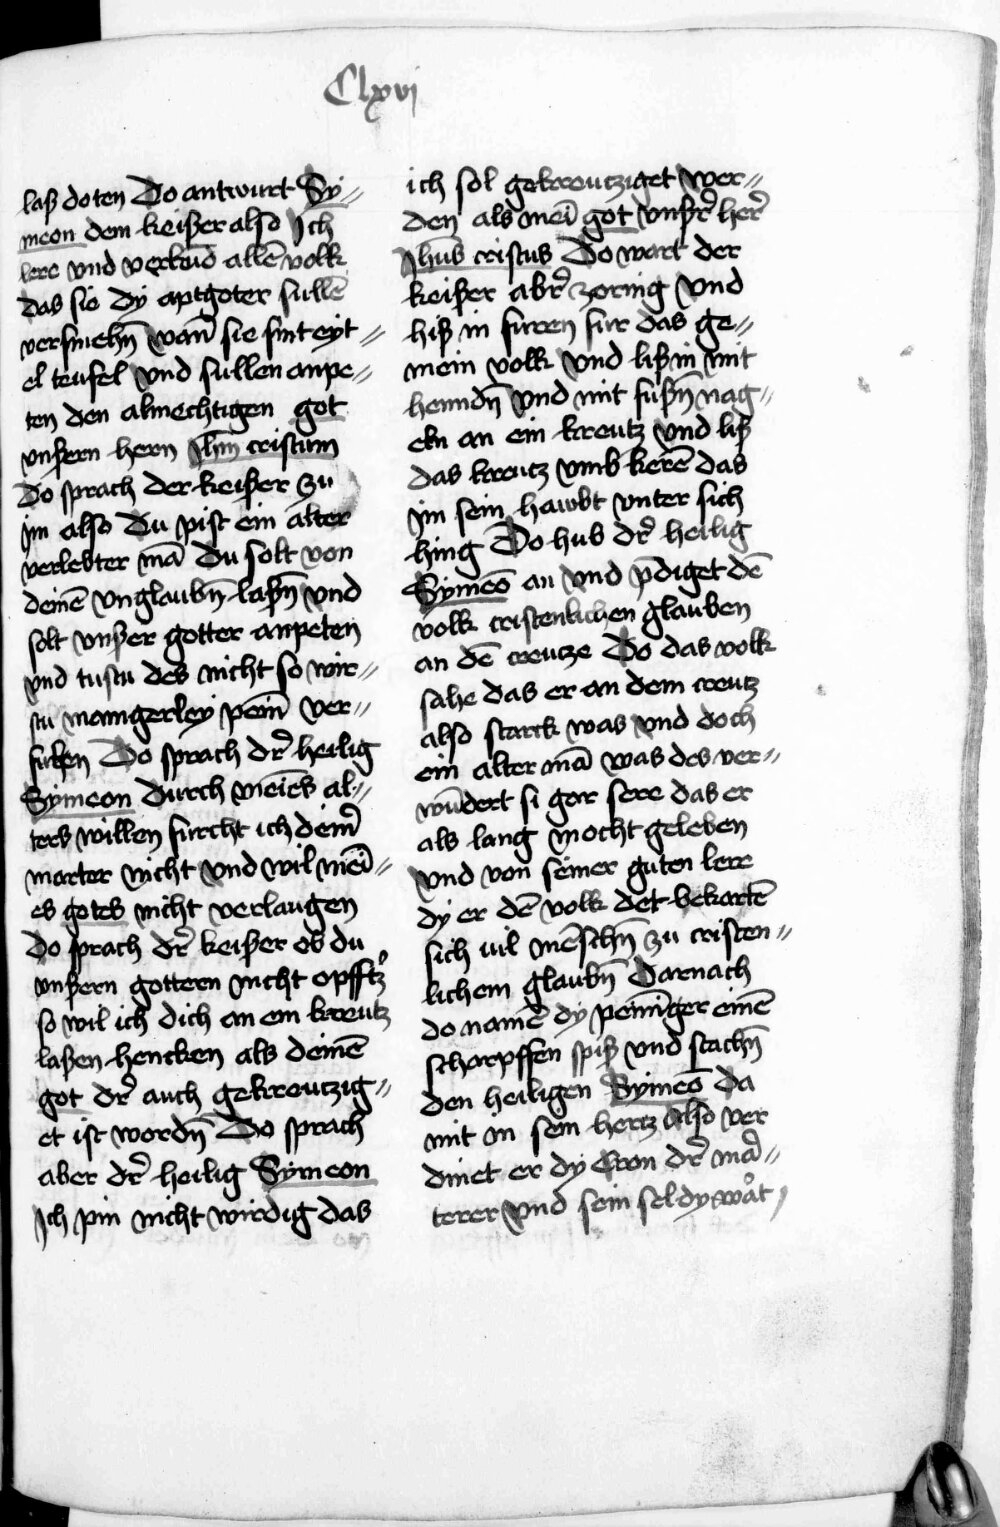 Clxvj
laß doten Do antwurt Sy⸗
meon dem keißer also Ich
lere vnd verkūd allē volk
das sie dy aptgoter sullē
versmehn̄ wan̄ sie sint eyt⸗
el teufel vnd sullen anpe⸗
ten den almechtigen got
vnßern hern Jhm̄ cristum
Do sprach der keißer zu
jm also Du pist ein alter
verlebter mā du solt von
deinē vnglaubn̄ laßn̄ vnd
solt vnßer gotter anpeten
vnd tustu des nicht so wir⸗
stu mangerley pein̄ ver⸗
suken Do sprach dr̄ heilig
Symeon durch meīes al⸗
ters willen furcht ich dein̄
marter nicht vnd wil meī⸗
es gotes nicht verlaugen
Do sprach dr̄ keißer ob du
vnßern gottern nicht opfftz̄
so wil ich dich an ein kreutz
laßen hencken als deinē
got dr̄ auch gekreutzig⸗
et ist wordn̄ Do sprach
aber dr̄ heilig Symeon
Ich pin nicht wirdig das
ich sol gekreutziget wer⸗
den als meī got vnßr̄ her̄
Jhūs cristus Do wart der
keißer abr̄ zornig vnd
hiß in furen fur das ge⸗
mein volk vnd liß in mit
henndn̄ vnd mit fußn̄ nag⸗
eln an ein kreutz vnd liß
das kreutz vmb kerē das
jm sein hawbt vnter sich
hing Do hub dr̄ heilig
Symeō an vnd p̄diget dē
volk cristenlichen glauben
an dē creutze Do das volk
sahe das er an dem creutz
also starck was vnd doch
ein alter mā was des ver⸗
wūdert si gar sere das er
als lang mocht geleben
vnd von seiner guten lere
dy er dē volk det bekartē
sich vil mēschn̄ zu cristen⸗
lichem glaubn̄ Darnach
do namē dy peiniger einē
scharpffen spiß vnd stachn̄
den heiligen Symeō da
mit in sein hertz also ver
dinet er dy Cron dr̄ mar̄⸗
terer vnd sein sel dy wart